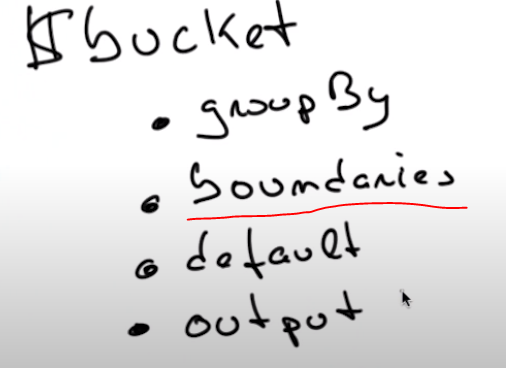 $bucket
• groupBy
• boundaries
• default
• output